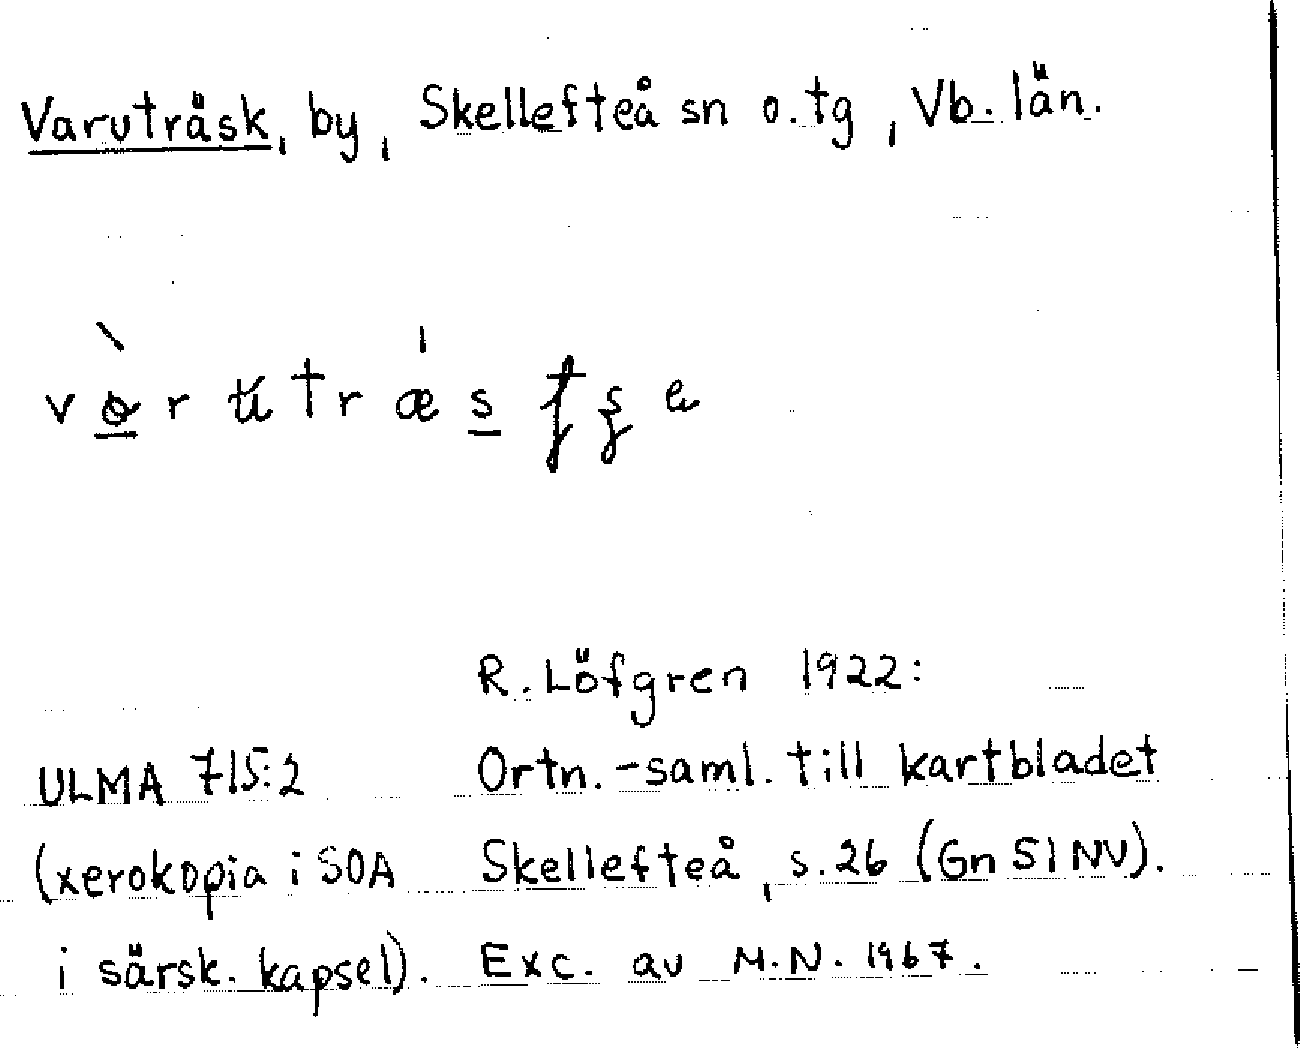 Varuträsk, by, Skellefteå sn o. tg, Vb. län.
R. Löfgren 1922:
ULMA 715:2 Ortn.-saml. till kartbladet
(xerokopia i SOA Skellefteå, s. 26 (Gn 51 NV).
i särsk. kapsel). Exc. av M.N. 1967.